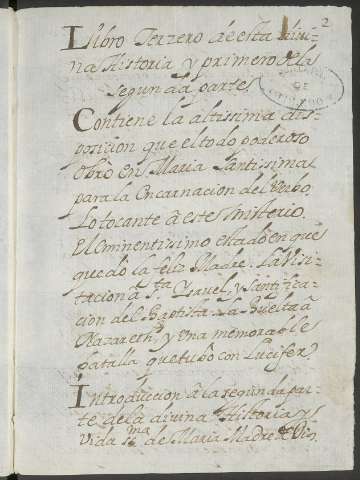 2
Libro Terzero de esta divi-
na Historia y primero de la
Segunda parte
Contiene la altissima dis-
posicion que el todo poderoso
obro en Maria Santissima
para la Encarnacion del Verbo
Lo tocante â este Misterio.
El eminentissimo estado en que
quedó la feliz Madre. La Visi-
tacion â S.ta Ysauel, y Santifica-
cion del Baptista. La buelta â
Nazareth, y una memorable
batalla que tubo con Lucifer.
Introduccion â la segunda par-
te de la divina Historia y
Vida SS.ma de Maria Madre de Dios